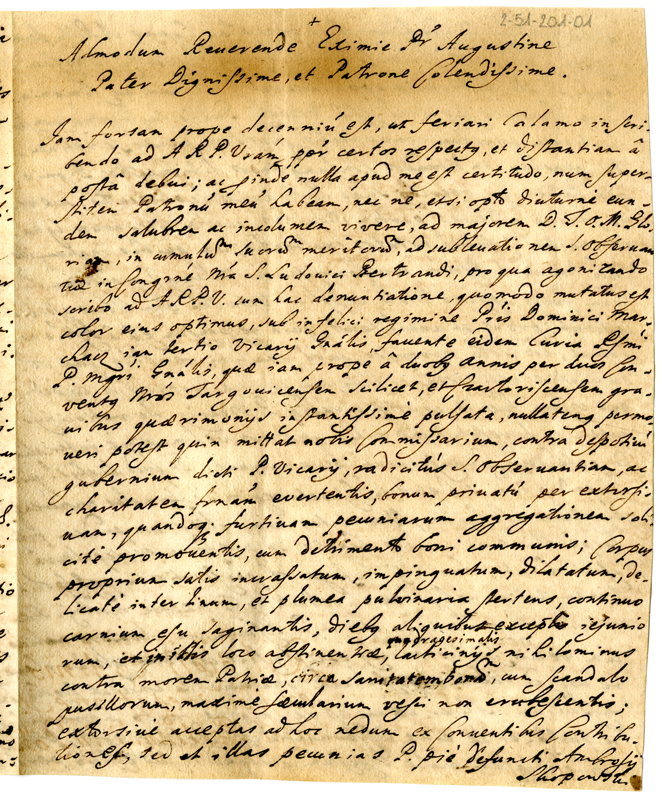 2-51-201-01
+
Admodum Reuerende Eximie Pr Augustine
Pater Dignissime, et Patrone Colendissime.
Iam forsan prope decenniū est, ut feriari calamo in scri-
bendo ad A R P. Vram, ppr certos respectg, et distantiam â
postâ debui; ac pinde nulla apud me est certitudo, num super-
stitem Patronū meū habeam, nec ne, etsi opto diuturne eun-
dem salubrem ac incolumem vivere, ad majorem D. T. O. M. Glo-
riam, in cumulum suorum meritorum, ad subleuationem S. Observan
tiæ in Congine nra S. Ludouici Bertrandi, pro qua agonizando
scribo ad A R P. V. cum hac denuntiatione, quomodo mutatus est
color eius optimus, sub infelici regimine Pris Dominici Mar-
chacz iam tertio Vicarij Gnâlis, fauente eidem Curia Rssmi
P. Mgri Gnâlis, quæ iam prope â duobg annis per duos Con-
ventg Nrôs Targouicensem scilicet, et Czartoriscensem gra-
uibus quærimonijs instantissimè pulsata, nullateng permo-
veri potest quin mittat nobis Commissarium, contra despoticū
gubernium dicti P. Vicarij, radicitùs S. Observantiam, ac
charitatem frnam evertentis, bonum priuatū per extorsi-
uam, quandog. furtiuam pecuniarum aggregationem soli-
citè promouentis, cum detrimento boni communis; Corpus
proprium satis incrassatum, impinguatum, dilatatum, de-
licatè inter linum, et plumea puluinaria stertens, continuo
carnium esu saginantis, diebg aliquibus exceptis iejunio
quadragesimalis
rum, et in illis loco abstinentiæ, lacticinijs nihilominus
contra morem Patriæ, circa sanitatem bonam, cum scandalo
pusillorum, maxime sæcularium vesci non erubescentis;
extorsiuè acceptas ad hoc nedum ex Conuentibus Contribu-
tiones, sed et illas pecunias P. piè defuncti Ambrosij